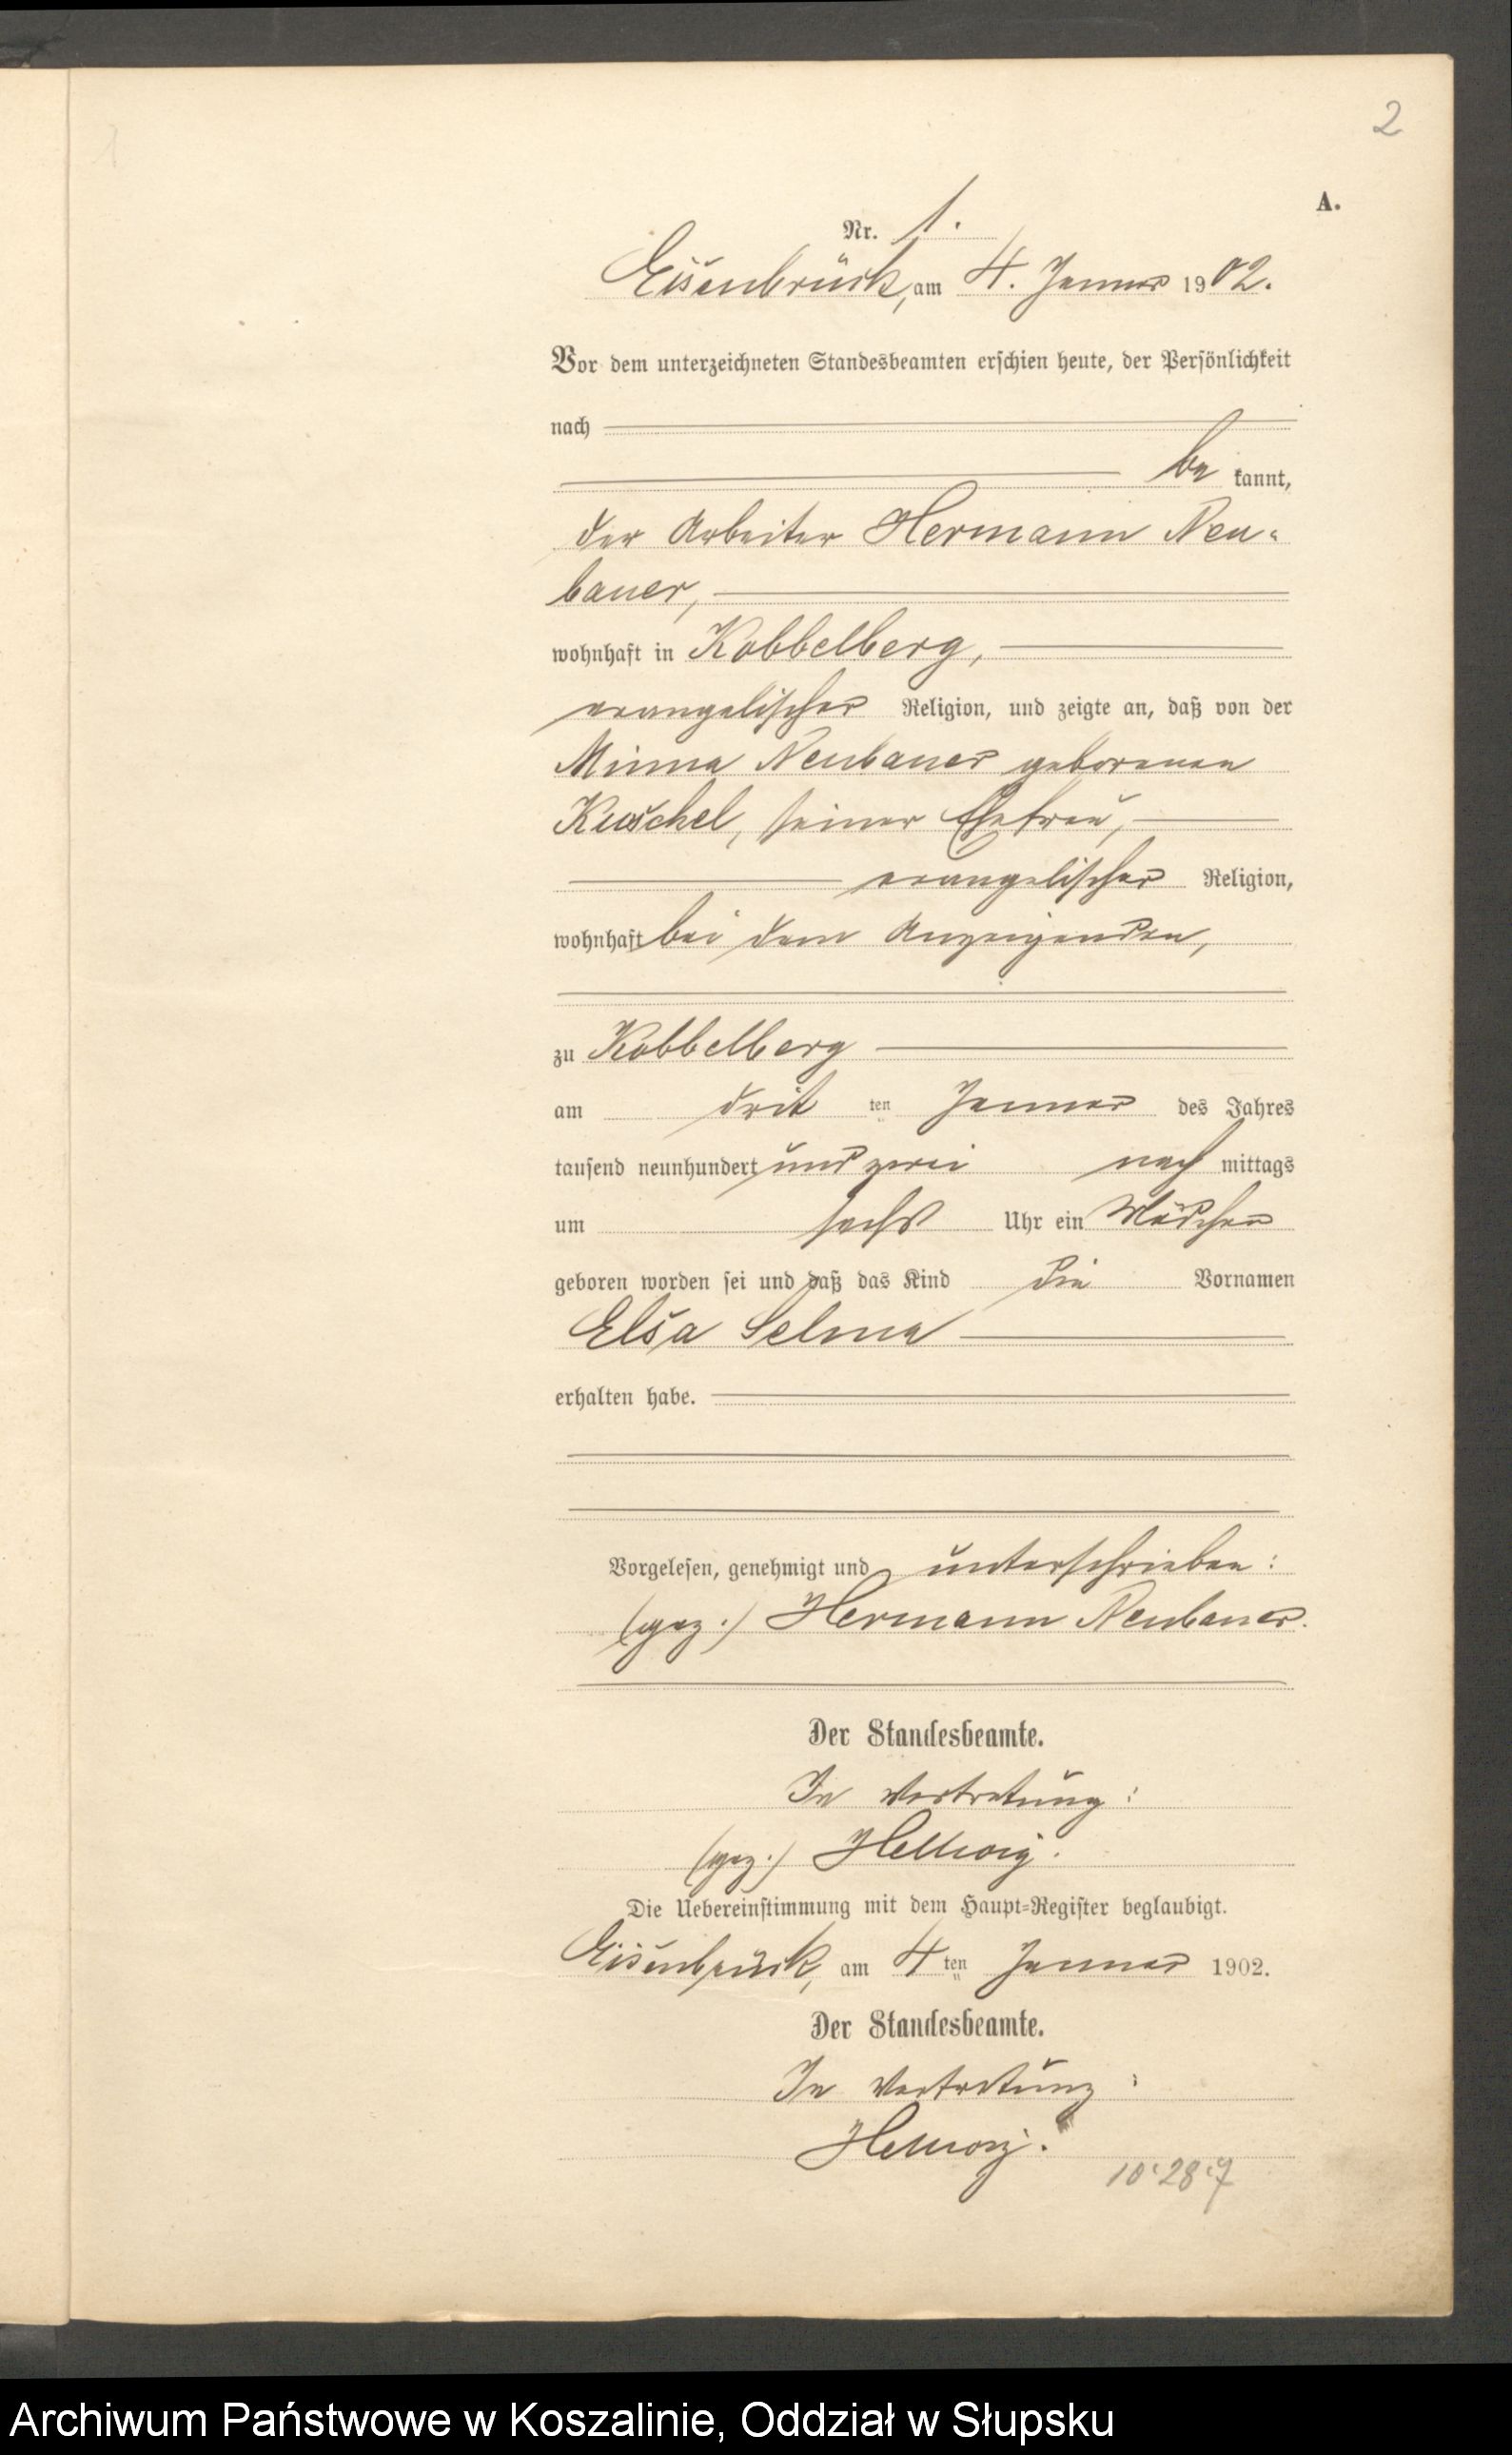 2
A.
Nr. 1.
Eisenbrück, am 4. Januar 1902.
Vor dem unterzeichneten Standesbeamten erschien heute, der Persönlichkeit
nach
be kannt,
der Arbeiter Hermann Neu-
bauer,
wohnhaft in Kobbelberg,
evangelischer Religion, und zeigte an, daß von der
Minna Neubauer geborenen
Kuschel, seiner Ehefrau,
evangelischer Religion,
wohnhaft bei dem Anzeigenden,
zu Kobbelberg
am drit ten Januar des Jahres
tausend neunhundert und zwei nach mittags
um sechs Uhr ein Mädchen
geboren worden sei und daß das Kind die Vornamen
Elsa Selma
erhalten habe.
Vorgelesen, genehmigt und unterschrieben:
(gez.) Hermann Neubauer.
Der Standesbeamte.
In Vertretung:
(gez.) Hellwig.
Die Uebereinstimmung mit dem Haupt-Register beglaubigt.
Eisenbrück, am 4 ten Januar 1902.
Der Standesbeamte.
In Vertretung:
Hellwig.
10·28·7
Archiwum Państwowe w Koszalinie, Oddział w Słupsku